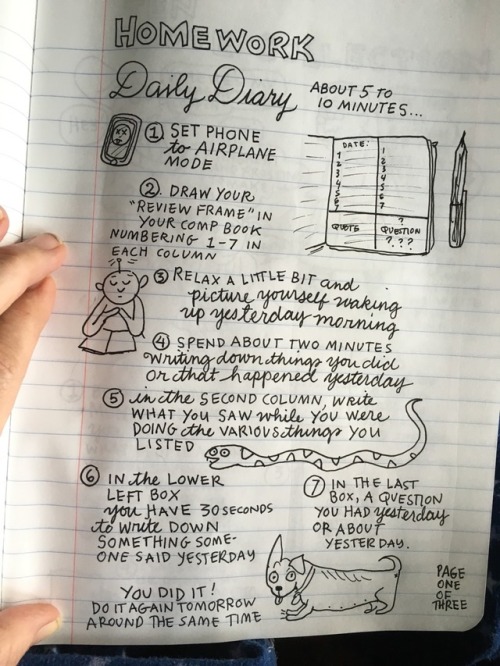 HOMEWORK
Daily Diary
ABOUT 5 TO
10 MINUTES...
① SET PHONE
to AIRPLANE
MODE
DATE:
1 1
2 2
3 3
4 4
5 5
6 6
7 7
QUOTE
?
QUESTION
? ? ?
②. DRAW YOUR
"REVIEW FRAME" IN
YOUR COMP BOOK
NUMBERING 1-7 IN
EACH COLUMN
③ RELAX A LITTLE BIT and
picture yourself waking
up yesterday morning
④ SPEND ABOUT TWO MINUTES
writing down things you did
or that happened yesterday
⑤ in the SECOND COLUMN, write
WHAT YOU SAW while YOU WERE
DOING the VARIOUS things YOU
LISTED
⑥ IN the LOWER
LEFT BOX
you HAVE 30 SECONDS
to write DOWN
SOMETHING SOME-
ONE SAID YESTERDAY
⑦ IN THE LAST
BOX, A QUESTION
YOU HAD yesterday
OR ABOUT
YESTERDAY.
YOU DID IT!
DO IT AGAIN TOMORROW
AROUND THE SAME TIME
PAGE
ONE
OF
THREE